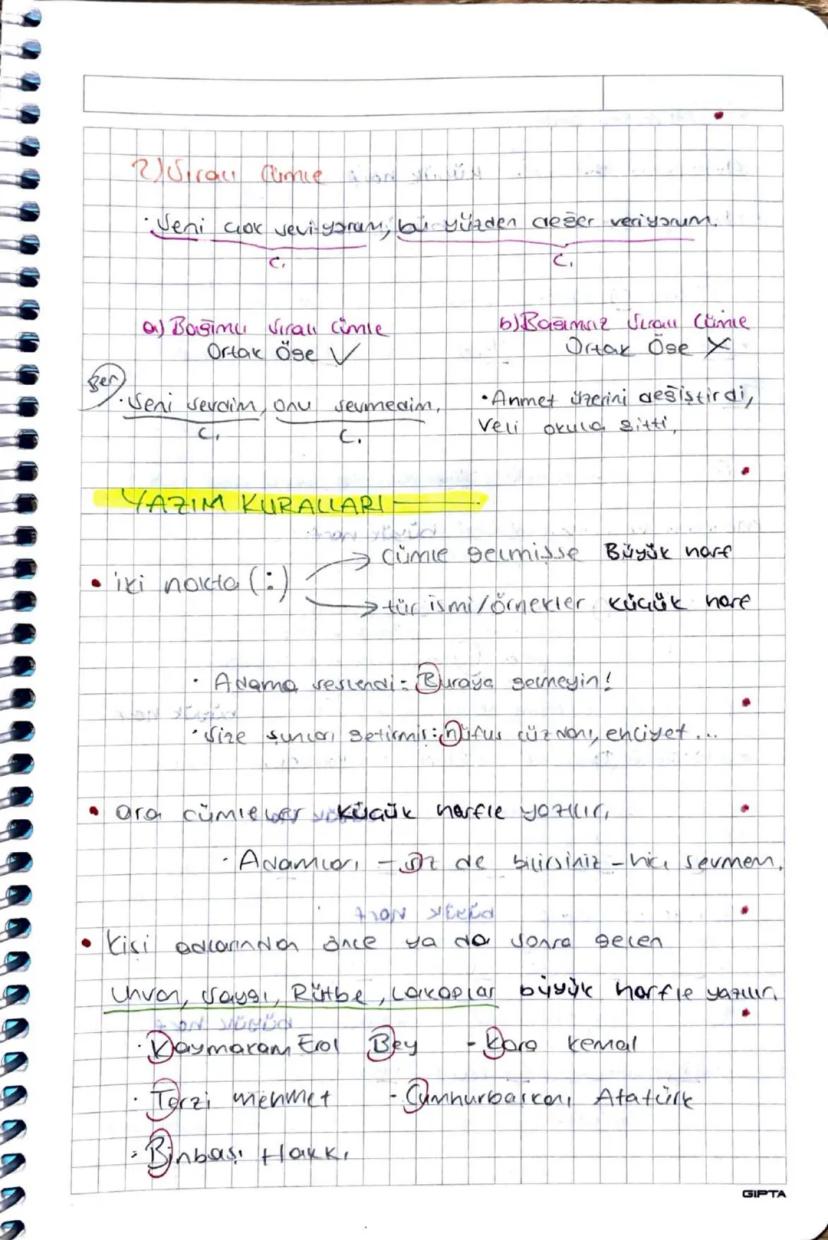 2) Sıralı Cümle
· Seni çok seviyorum, bu yüzden değer veriyorum.
C. C.
a) Bağımlı Sıralı Cümle b) Bağımsız Sıralı Cümle
Ortak Öge ✓ Ortak Öge ✗
Ben
· Seni sevdim, onu sevmedim. • Ahmet üzerini değiştirdi,
C. C. Veli okula gitti.
YAZIM KURALLARI
→ cümle gelmişse Büyük harf
• iki nokta (:)
→ tür ismi/örnekler küçük harf
· Adama seslendi: Buraya gelmeyin!
· Size şunları getirmiş: nüfus cüzdanı, ehliyet...
• ara cümleler küçük harfle yazılır.
· Adamları – siz de bilirsiniz – hiç sevmem.
• Kişi adlarından önce ya da sonra gelen
Unvan, Saygı, Rütbe, Lakaplar büyük harfle yazılır.
· Kaymakam Erol Bey - Kara Kemal
· Terzi Mehmet - Cumhurbaşkanı Atatürk
· Binbaşı Hakkı
GIPTA